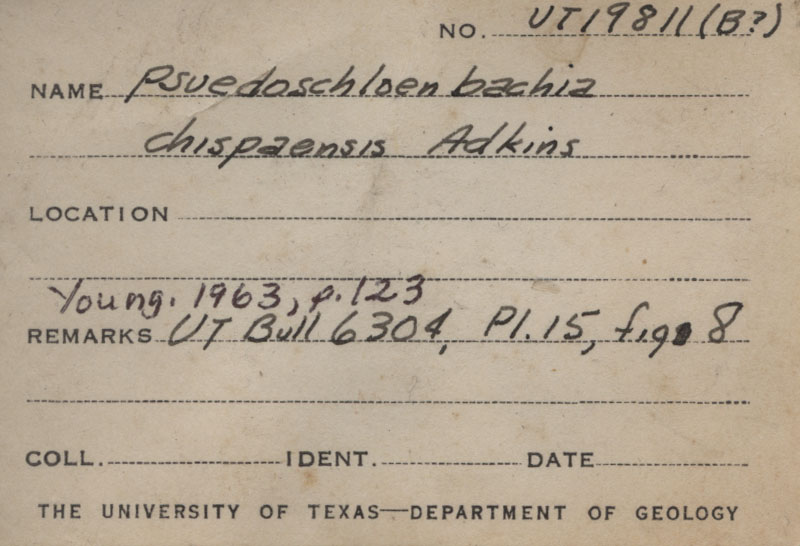 NO. UT19811(B?)
NAME Psuedoschloenbachia
chispaensis Adkins
LOCATION
Young. 1963, p.123
REMARKS UT Bull 6304, Pl.15, fig. 8
COLL. IDENT. DATE
THE UNIVERSITY OF TEXAS—DEPARTMENT OF GEOLOGY